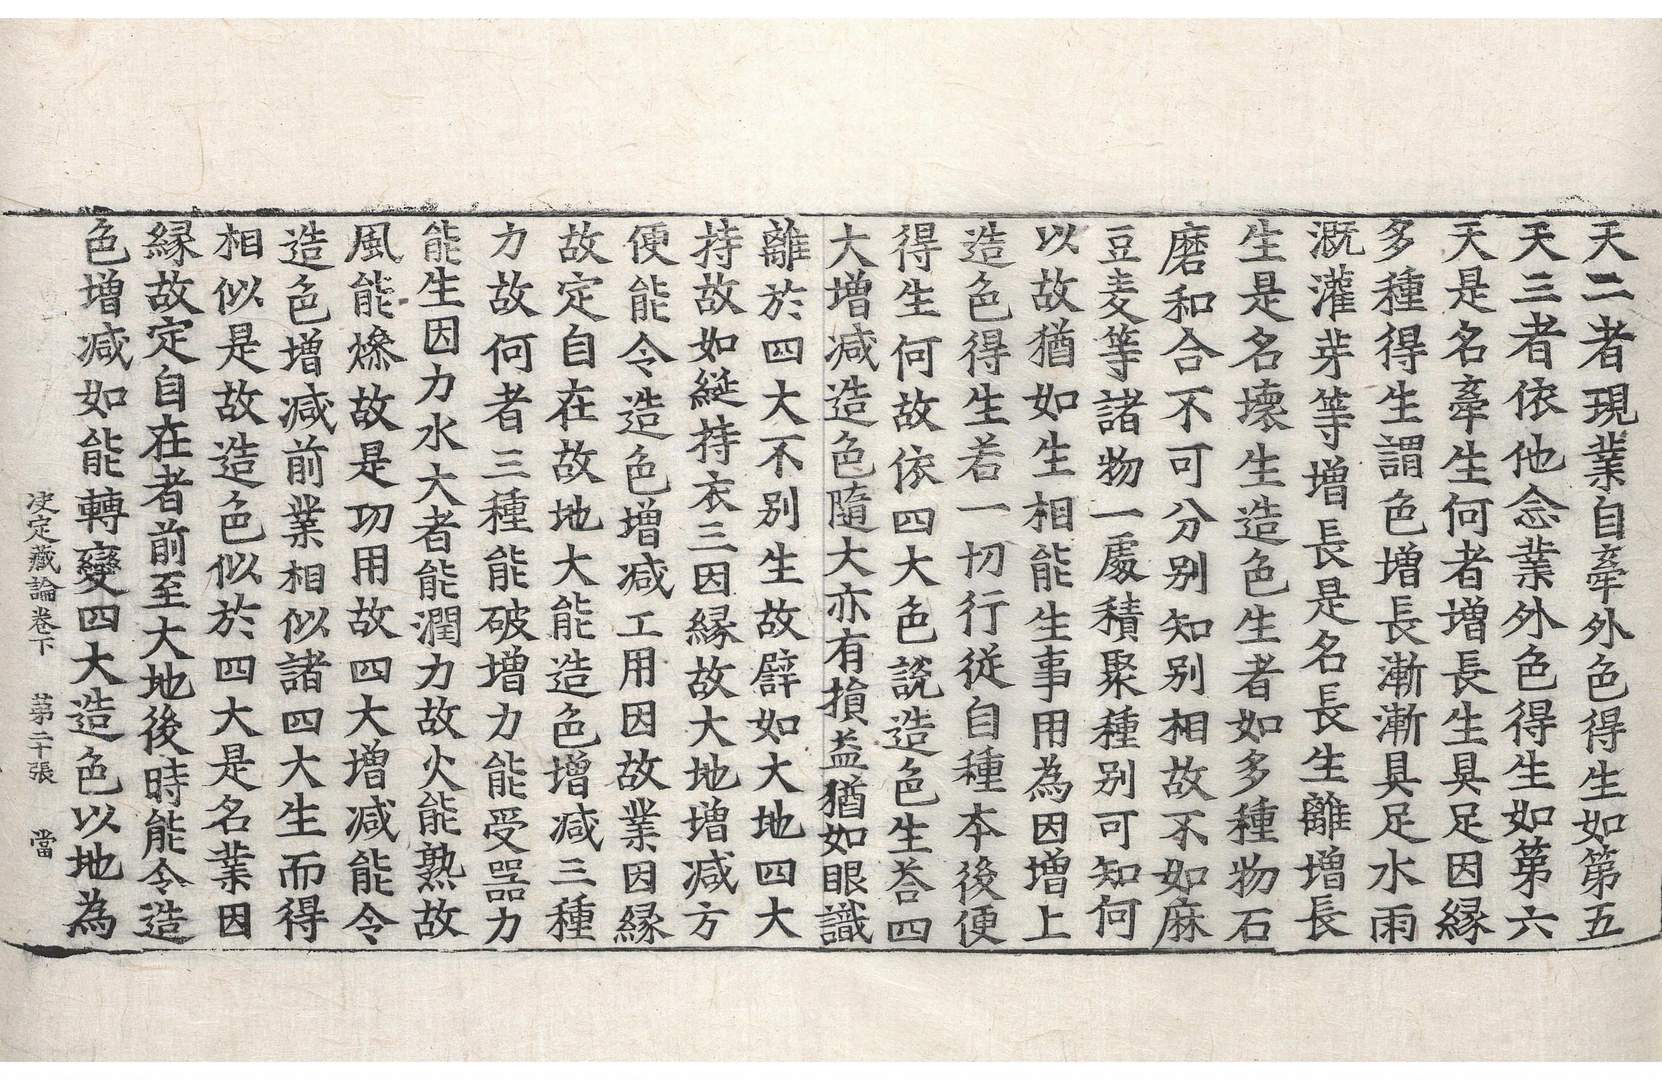 天二者現業自牽外色得生如第五
天三者依他念業外色得生如第六
天是名牽生何者增長生具足因縁
多種得生謂色增長漸漸具足水雨
溉灌芽等增長是名長生離增長
生是名壞生造色生者如多種物石
磨和合不可分別知別相故不如麻
豆麦等諸物一處積聚種別可知何
以故猶如生相能生事用為因增上
造色得生若一切行従自種本後便
得生何故依四大色說造色生荅四
大增減造色隨大亦有損益猶如眼識
離於四大不别生故譬如大地四大
持故如綖持衣三因縁故大地增減方
便能令造色增減工用因故業因縁
故定自在故地大能造色增減三種
力故何者三種能破增力能受器力
能生因力水大者能潤力故火能熟故
風能燥故是功用故四大增減能令
造色增減前業相似諸四大生而得
相似是故造色似於四大是名業因
縁故定自在者前至大地後時能令造
色增減如能轉變四大造色以地為
决定藏論卷下 苐二十張 當